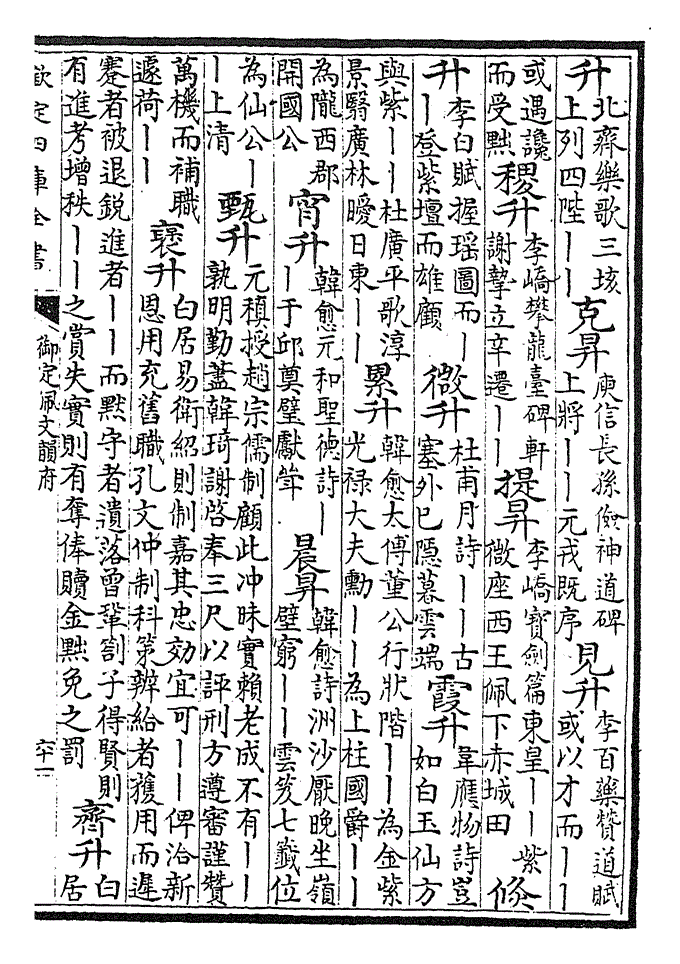 升北齊樂歌三垓上列四陛丨丨克昇庾信長孫儉神道碑上將丨丨元戎既序見升李百藥贊道賦或以才而丨丨
或遇讒而受黜稷升李嶠攀龍臺碑軒謝摯立辛遷丨丨提昇李嶠寶劍篇東皇丨丨紫微座西王佩下赤城田倐
升李白賦握瑶圖而丨丨登紫壇而雄顧微升杜甫月詩丨丨古塞外已隱暮雲端霞升韋應物詩豈如白玉仙方
與紫丨丨杜廣平歌淳景翳廣林曖日東丨丨累升韓愈太傅董公行狀階丨丨為金紫光禄大夫勳丨丨為上柱國爵丨丨
為隴西郡開國公宵升韓愈元和聖德詩丨丨于邱奠璧獻斝晨昇韓愈詩洲沙厭晚坐嶺壁窮丨丨雲笈七籤位
為仙公丨丨上清甄升元稹授趙宗儒制顧此冲昧實賴老成不有丨丨孰明勤藎韓琦謝啓奉三尺以評刑方遵審謹贊
萬機而補職遽荷丨丨褒升白居易衛紹則制嘉其忠効宜可丨丨俾洽新恩用充舊職孔文仲制科策辨給者獲用而遲
蹇者被退鋭進者丨丨而黙守者遺落曾鞏劄子得賢則有進考增秩丨丨之賞失實則有奪俸贖金黜免之罰齊升白居
欽定四庫全書
御定佩文韻府
六十一